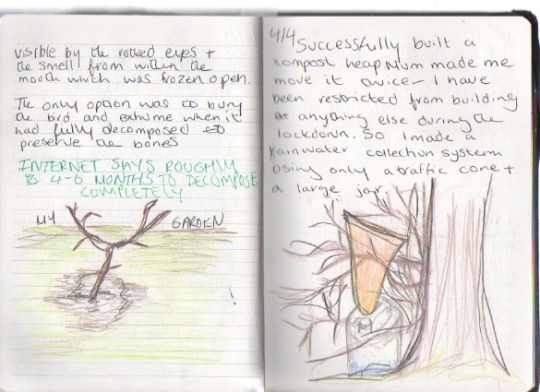 visible by the rotted eyes +
the smell from within the
mouth which was frozen open.
The only option was to bury
the bird and exhume when it
had fully decomposed to
preserve the bones
INTERNET SAYS ROUGHLY
4-6 MONTHS TO DECOMPOSE
COMPLETELY
MY GARDEN
4/4 Successfully built a
compost heap. Mum made me
move it twice - I have
been restricted from building
anything else during the
lockdown. So I made a
rainwater collection system
using only a traffic cone +
a large jar